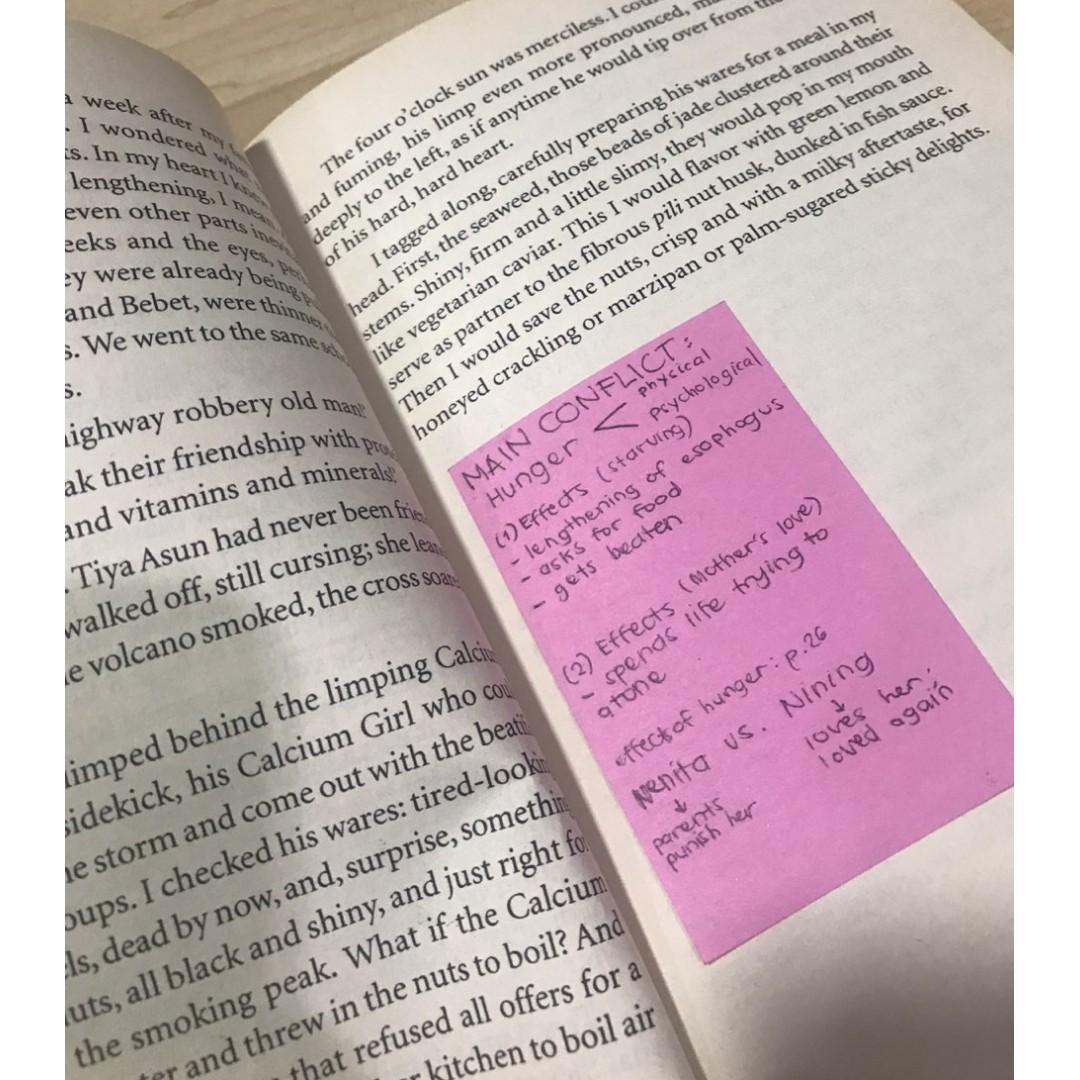 a week after my
. I wondered what
ts. In my heart I knew
lengthening, I mean,
even other parts
eeks and the eyes,
ey were already being
and Bebet, were thinner
s. We went to the same
s.
ighway robbery old man!'
ak their friendship with
and vitamins and minerals!'
. Tiya Asun had never been
walked off, still cursing; she
e volcano smoked, the cross
imped behind the limping
sidekick, his Calcium Girl who
e storm and come out with the
oups. I checked his wares:
ls, dead by now, and, surprise,
uts, all black and shiny, and just right
the smoking peak. What if the Calcium
and threw in the nuts to boil? And
that refused all offers for a
kitchen to boil air
The four o'clock sun was merciless. I
and fuming, his limp even more pronounced,
deeply to the left, as if anytime he would tip over from
of his hard, hard heart.
I tagged along, carefully preparing his wares for a meal in my
head. First, the seaweed, those beads of jade clustered around their
stems. Shiny, firm and a little slimy, they would pop in my mouth
like vegetarian caviar. This I would flavor with green lemon and
serve as partner to the fibrous pili nut husk, dunked in fish sauce.
Then I would save the nuts, crisp and with a milky aftertaste, for
honeyed crackling or marzipan or palm-sugared sticky delights.
MAIN CONFLICT:
Hunger < physical
psychological
(1) Effects (starving)
- lengthening of esophogus
- asks for food
- gets beaten
(2) Effects (Mother's love)
- spends life trying to
atone
effect of hunger: p.26
Nenita vs. Nining
↓ ↓
parents loves her;
punish her loved again